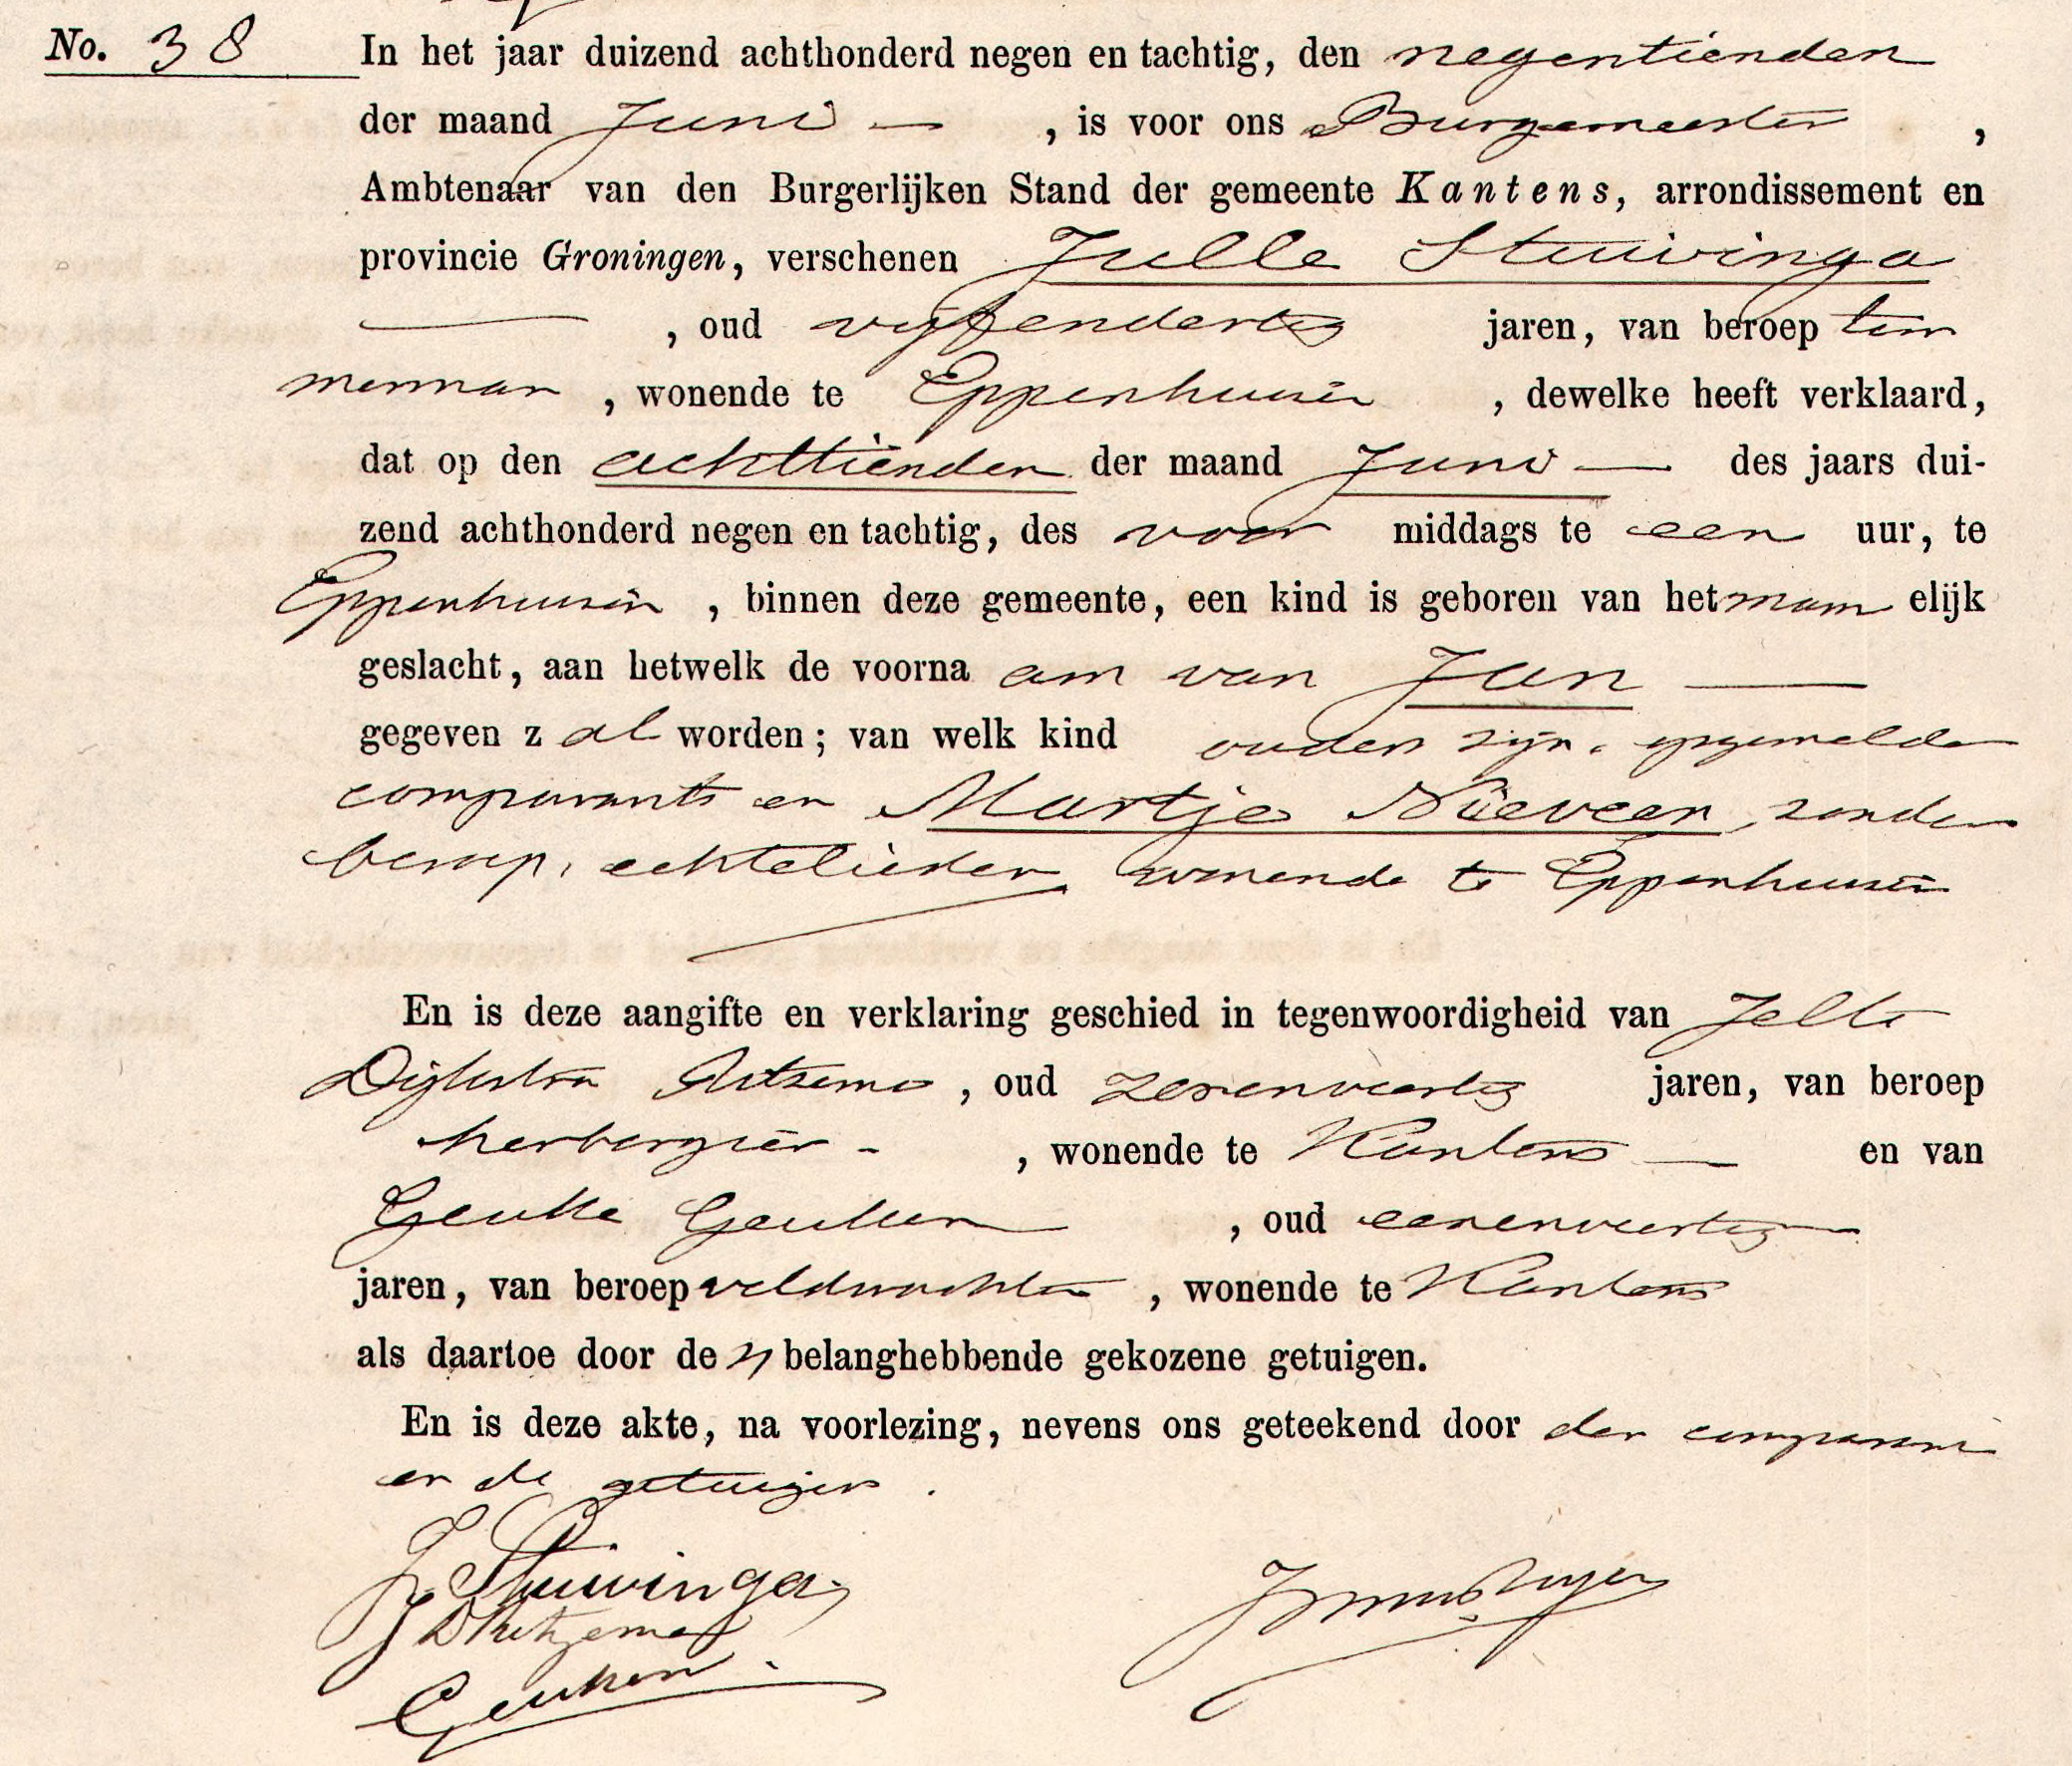 No. 38 In het jaar duizend achthonderd negen en tachtig, den negentienden
der maand Juni — , is voor ons Burgemeester ,
Ambtenaar van den Burgerlijken Stand der gemeente Kantens, arrondissement en
provincie Groningen, verschenen Julle Stuivinga
— , oud vijfendertig jaren, van beroep tim
merman , wonende te Eppenhuizen , dewelke heeft verklaard,
dat op den achttienden der maand Juni — des jaars dui-
zend achthonderd negen en tachtig, des voor middags te een uur, te
Eppenhuizen , binnen deze gemeente, een kind is geboren van het mann elijk
geslacht, aan hetwelk de voorna am van Jan —
gegeven z al worden; van welk kind ouders zijn. opgemelde
comparant en Martje Nieveen, zonder
beroep, echtelieden wonende te Eppenhuizen
En is deze aangifte en verklaring geschied in tegenwoordigheid van Jelte
Dijkstra Ritzema , oud zesenveertig jaren, van beroep
herbergier - , wonende te Kantens — en van
Geuke Geuken , oud eenenveertig
jaren, van beroep veldwachter , wonende te Kantens
als daartoe door de n belanghebbende gekozene getuigen.
En is deze akte, na voorlezing, nevens ons geteekend door den comparant
en de getuigen .
J. Stuivinga
J D Ritzema
Geuken